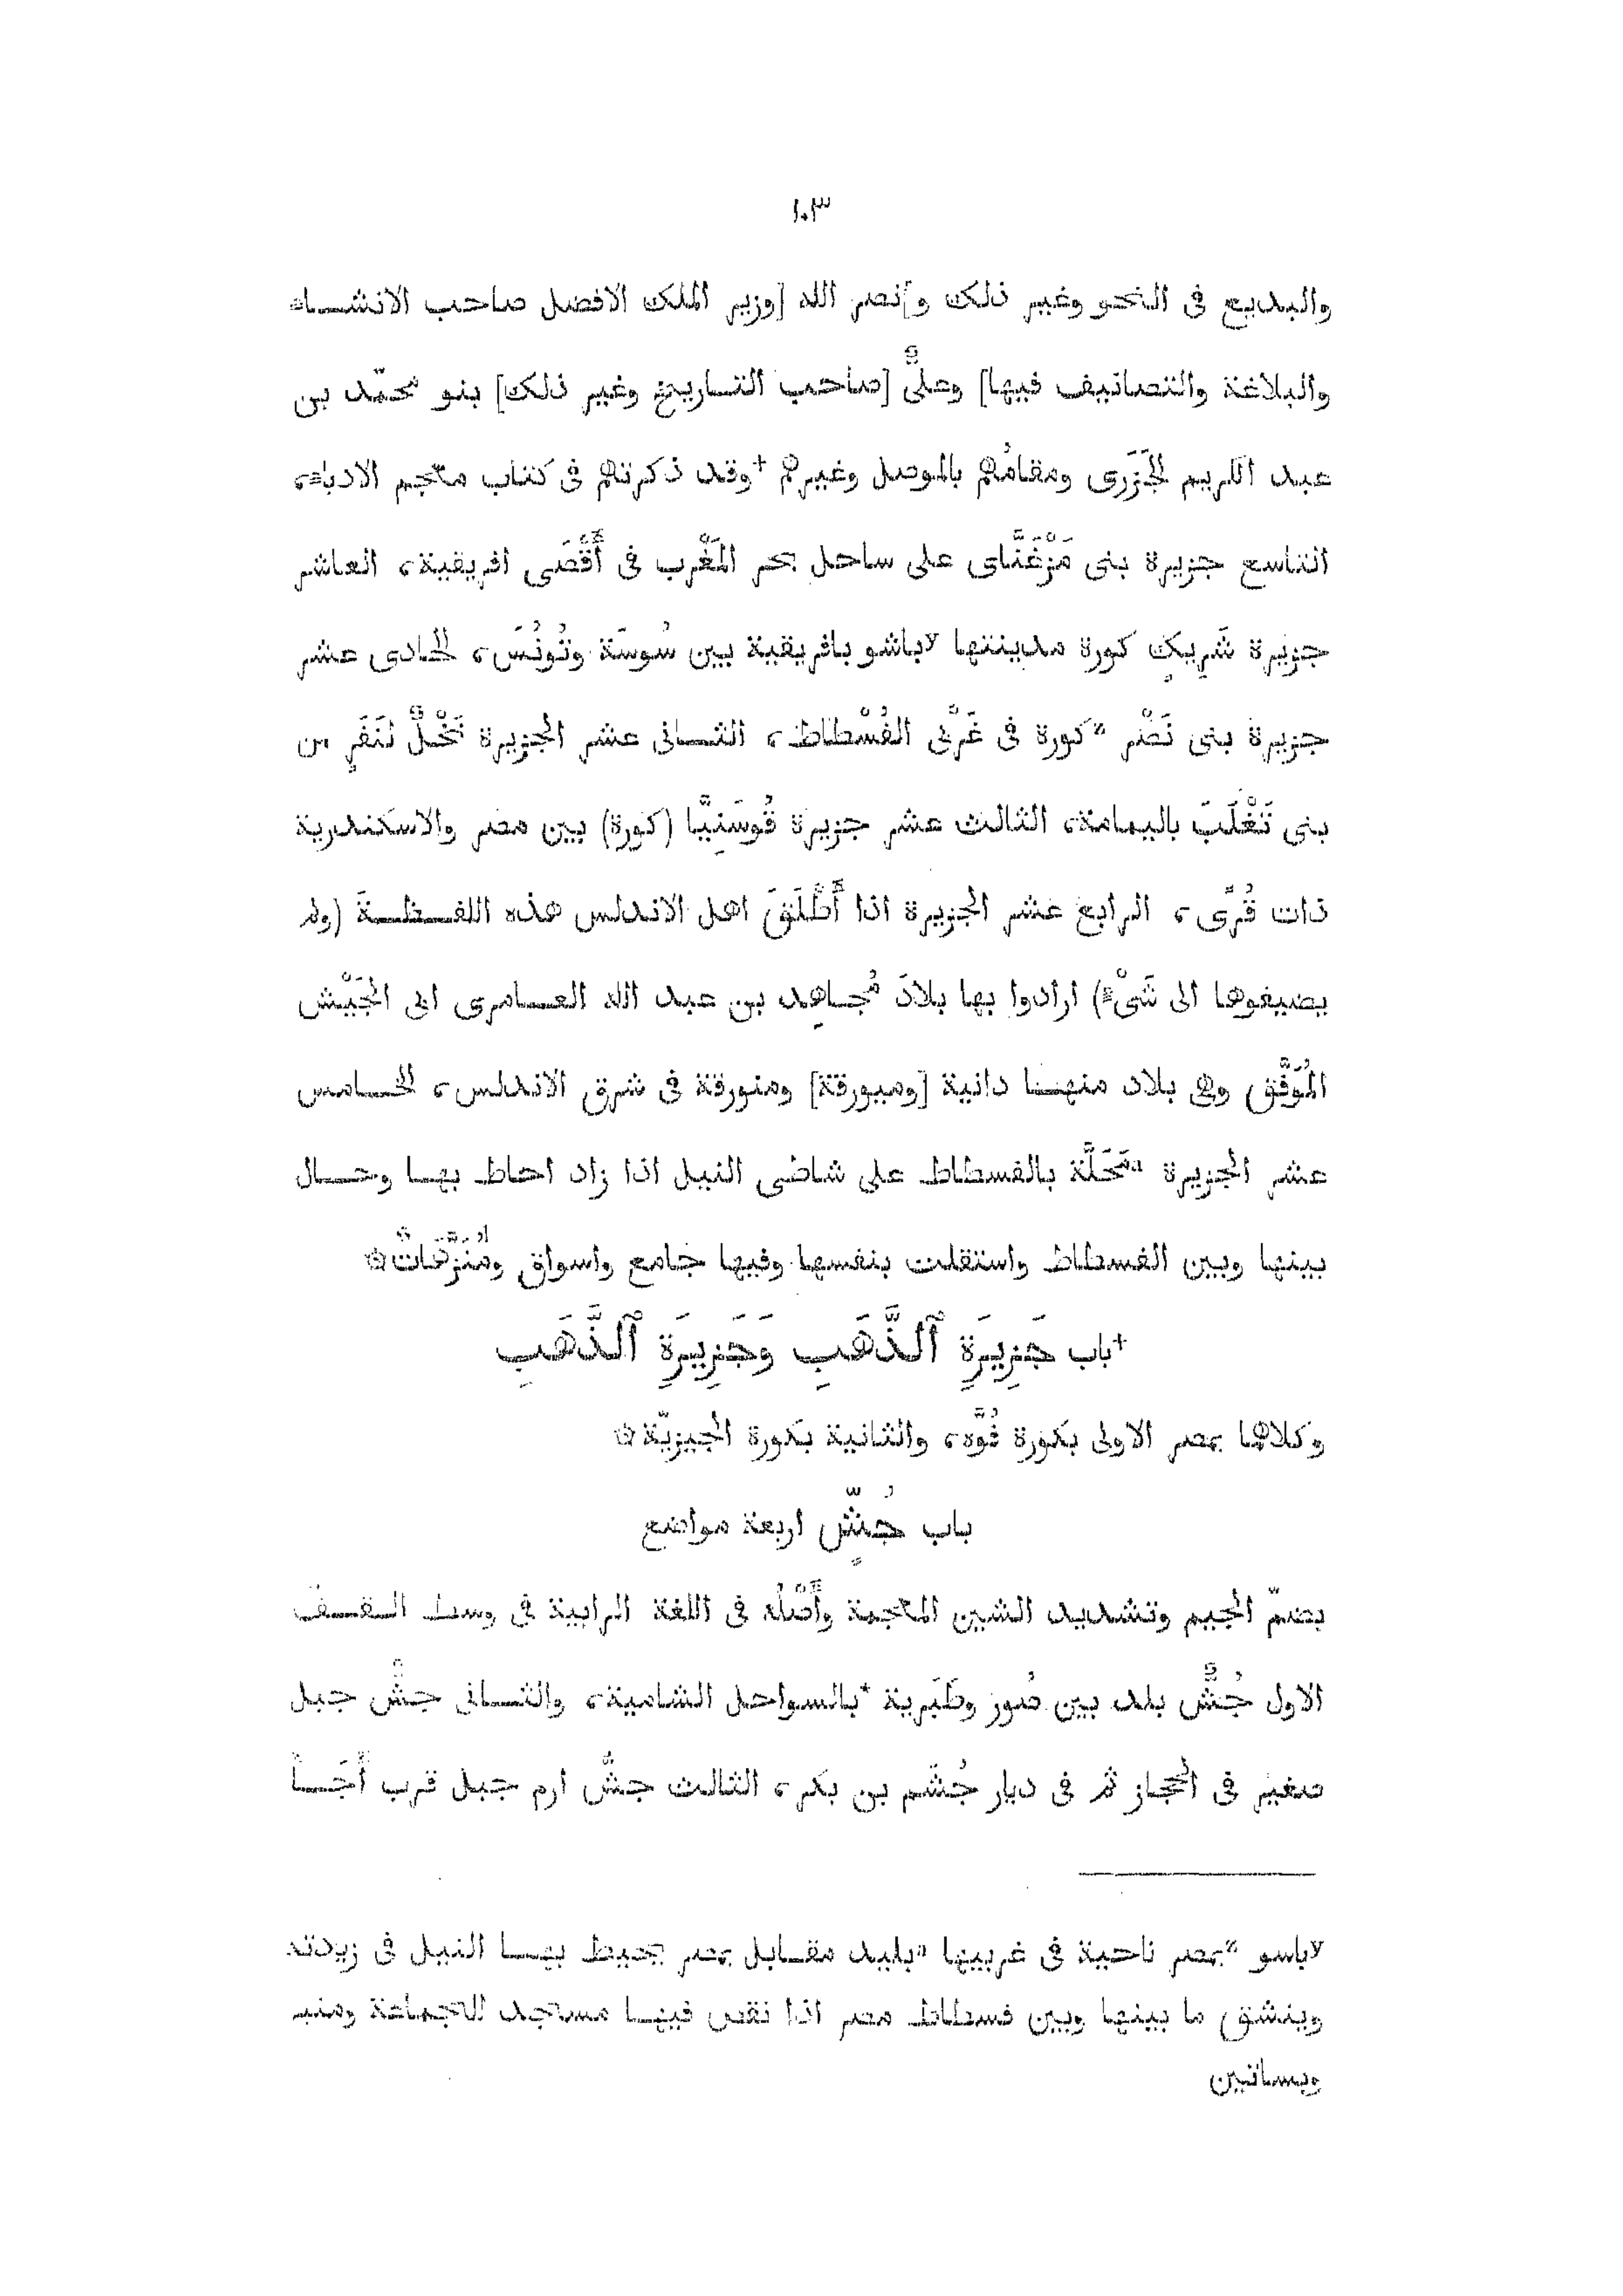 ١٠٣
والبديع فى النحو وغير ذلك و]نصر الله [وزير الملك الافضل صاحب الانشاء
والبلاغة والتصانيف فيها] وعلىٌّ [صاحب التاريخ وغير ذلك] بنو محمّد بن
عبد الكريم الجَزَرى ومقامُهم بالموصل وغيرهم †وقد ذكرتهم فى كتاب معجم الادباء،
التاسع جزيرة بنى مَزْغَنَّاى على ساحل بحر المَغْرب فى أَقْصَى افريقية، العاشر
جزيرة شَرِيكٍ كورة مدينتها لاباشو بافريقية بين سُوسَة وتُونُسَ، الحادى عشر
جزيرة بنى نَصْر "كورة فى غَرْبى الفُسْطاط، الثانى عشر الجزيرة نَخْلٌ لنَفَرٍ من
بنى تَغْلَبَ باليمامة، الثالث عشر جزيرة قُوسَنِيَّا (كورة) بين مصر والاسكندرية
ذات قُرًى، الرابع عشر الجزيرة اذا أَطْلَقَ اهل الاندلس هذه اللفظةَ (ولم
يضيفوها الى شَىْء) ارادوا بها بلادَ مُجاهِد بن عبد الله العامرى ابى الجَيْش
المُوَفَّق وهى بلاد منها دانية [وميورقة] ومنورقة فى شرق الاندلس، الخامس
عشر الجزيرة "مَحَلَّة بالفسطاط على شاطى النيل اذا زاد احاط بها وحال
بينها وبين الفسطاط واستقلت بنفسها وفيها جامع واسواق ومُتَنَزَّهَاتٌ ۞
†باب جَزِيرَةِ ٱلذَّهَبِ وَجَزِيرَةِ ٱلذَّهَبِ
وكلاهما بمصر الاولى بكورة فُوَّه، والثانية بكورة الجيزيّة ۞
باب جُشٍّ اربعة مواضع
بضمّ الجيم وتشديد الشين المعجمة وأَصْلُه فى اللغة الرابية فى وسط القف
الاول جُشٌّ بلد بين صُور وطَبَرية *بالسواحل الشامية، والثانى جشٌّ جبل
صغير فى الحجاز ثم فى ديار جُشَم بن بكر، الثالث جشُّ ارم جبل قرب أَجَأ
لاباسو "بمصر ناحية فى غربيها "بليد مقابل بمصر يحيط بها النيل فى زيدته
وينشق ما بينها وبين فسطاط مصر اذا نقص فيها مسجد للجماعة ومنبر
وبساتين